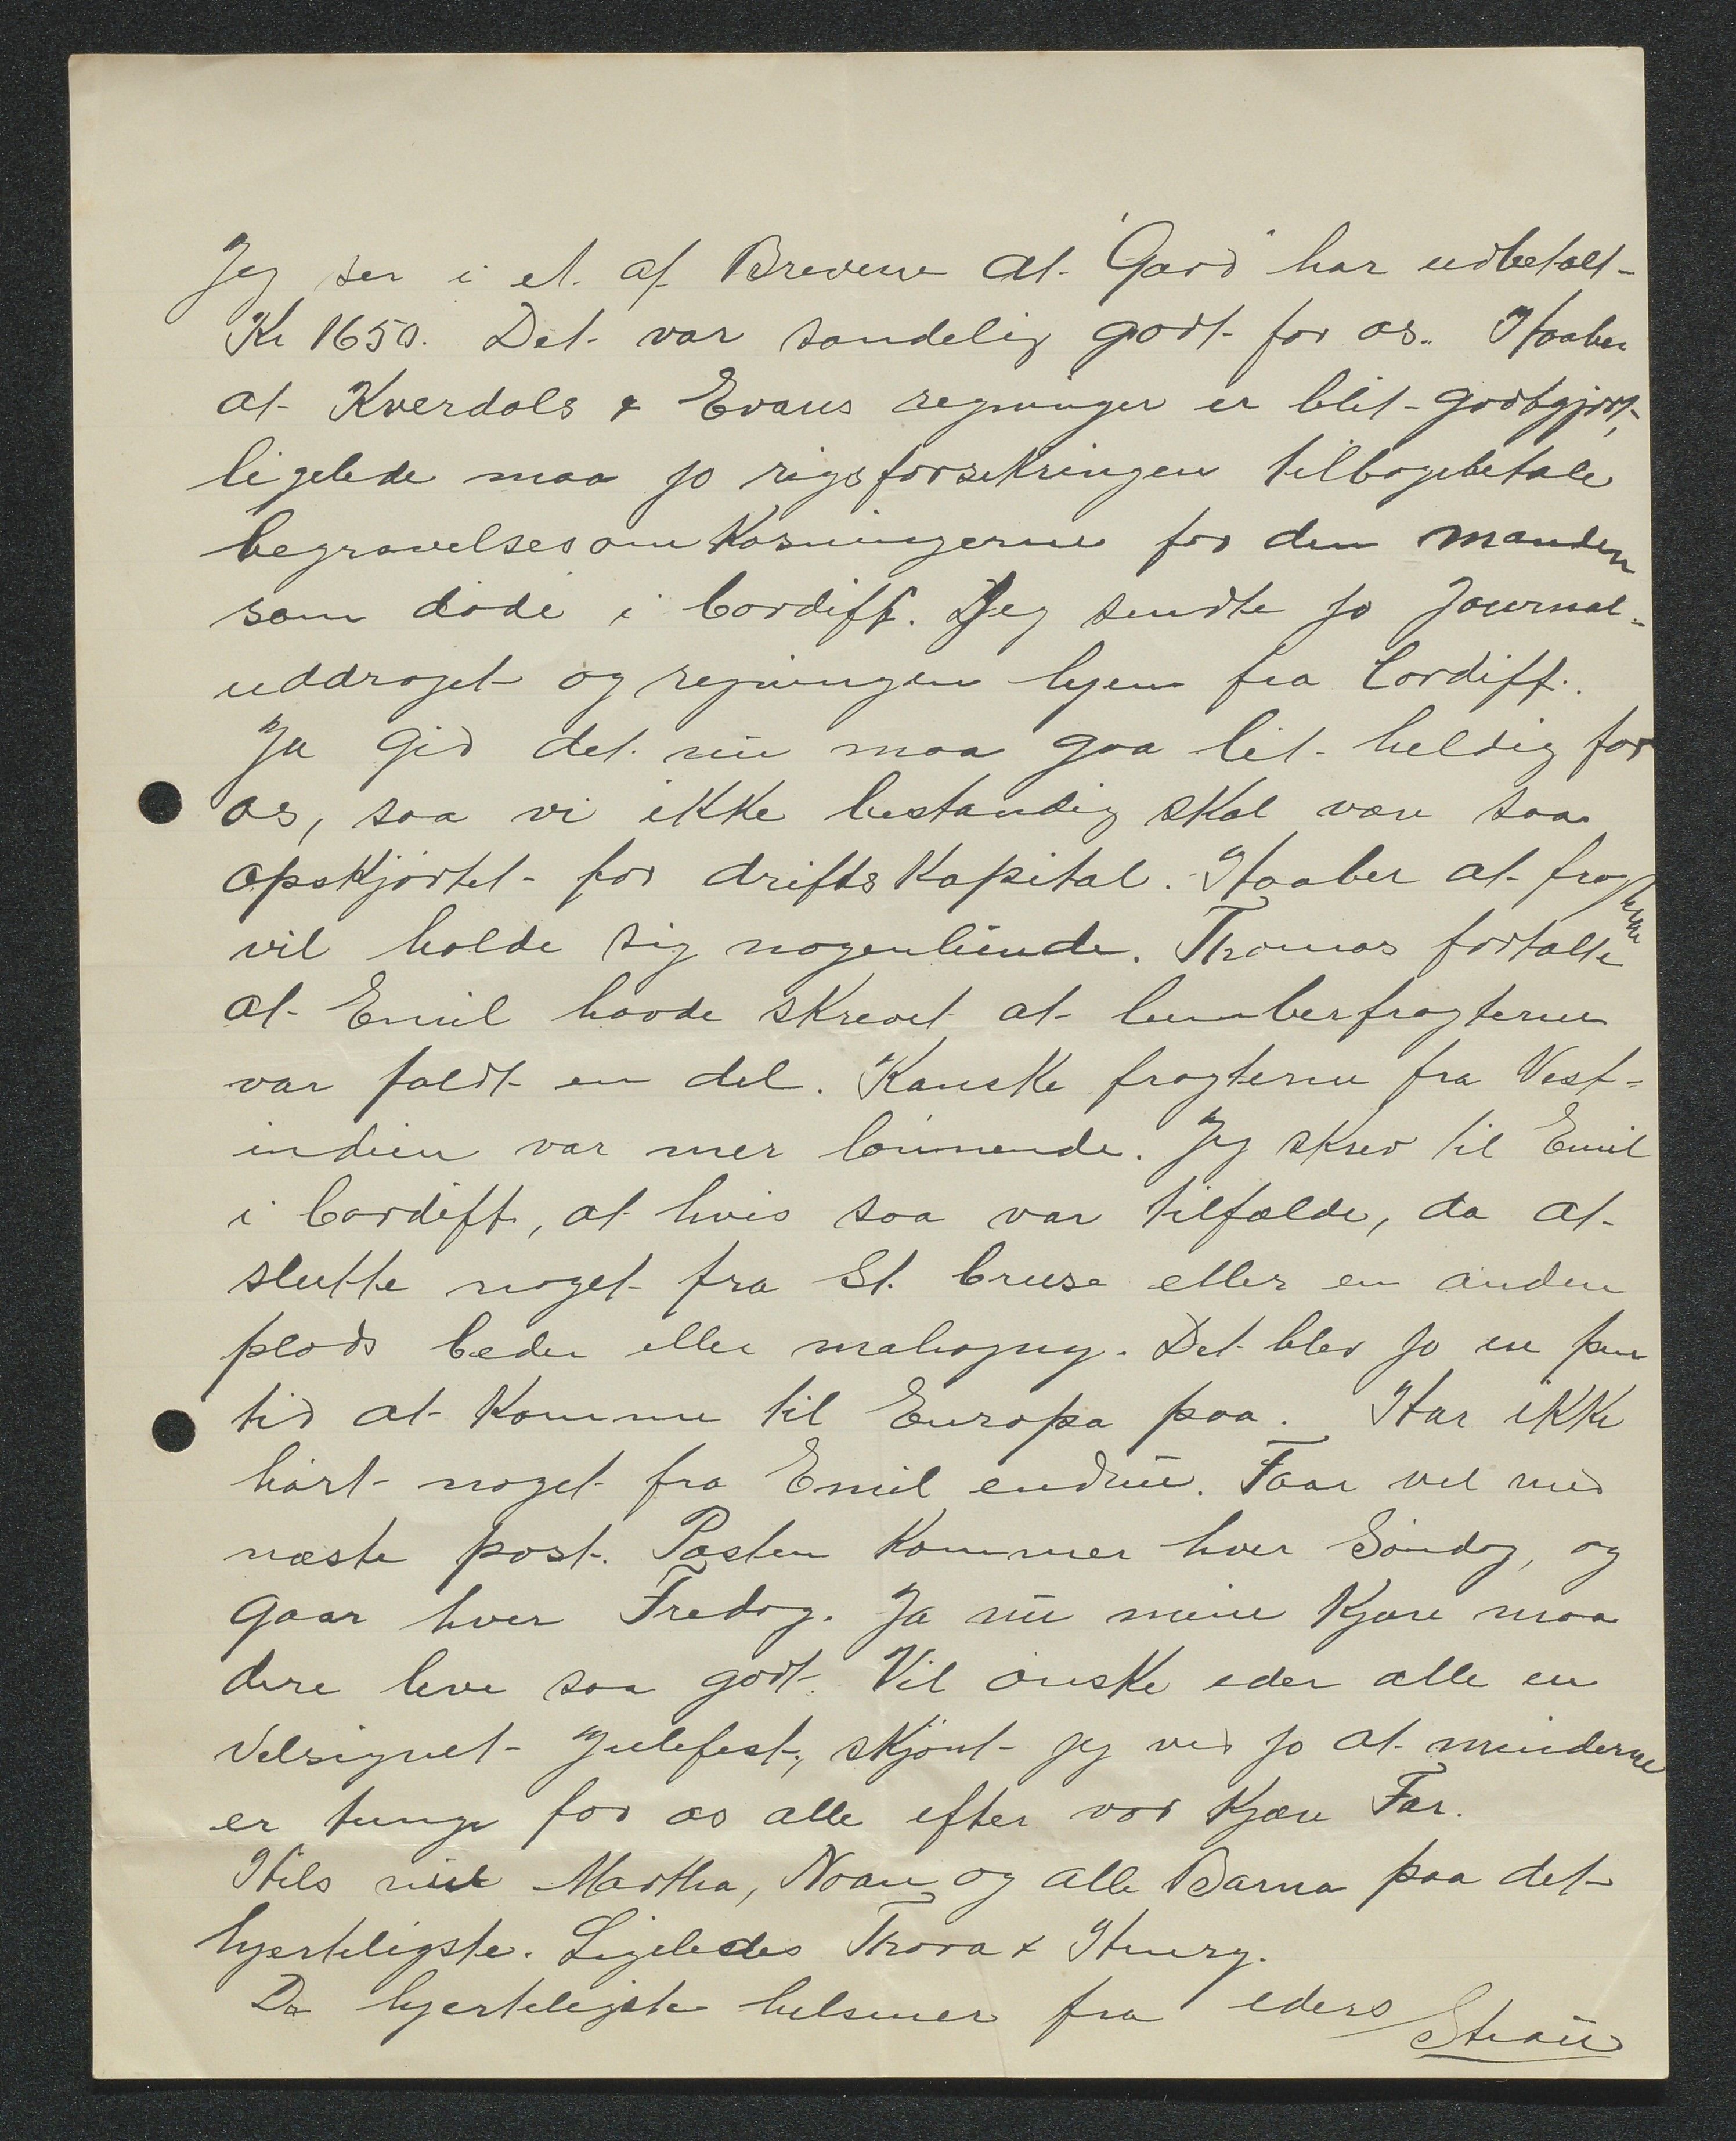 Jeg ser i et af Brevene at "Gard" har udbetalt
Kr 1650. Det var sandelig godt for os. Haaber
at Kverdals & Evans regninger er blit godtgjort,
ligelede maa jo rigsforsekringen tilbagebetale
begravelsesomkosningerne for den manden
som døde i Cardiff. Jeg sendte jo Journal-
uddraget og regningen hjem fra Cardiff.
Ja gid det nu maa gaa lit heldig for
os, saa vi ikke bestandig skal være saa
opskjørtet for driftskapital. Haaber at fragterne
vil holde sig nogenlunde. Thomas fortalte
at Emil havde skrevet at lumberfragterne
var faldt en del. Kanske fragterne fra Vest-
indien var mer lønnende. Jeg skrev til Emil
i Cardiff, at hvis saa var tilfælde, da at
slutte noget fra St. Cruse eller en anden
plads Ceder eller mahogny. Det blev jo en pen
tid at komme til Europa paa. Har ikke
hørt noget fra Emil endnu. Faar vel med
næste post. Posten kommer hver Søndag, og
gaar hver Fredag. Ja nu mine kjære maa
dere leve saa godt. Vil ønske eder alle en
Velsignet Julefest, skjønt jeg ved jo at minderne
er tunge for os alle efter vor kjære Far.
Hils Martha, og alle Barna paa det
hjerteligste. Ligeledes Thora & Henry.
De hjerteligste helsener fra eders